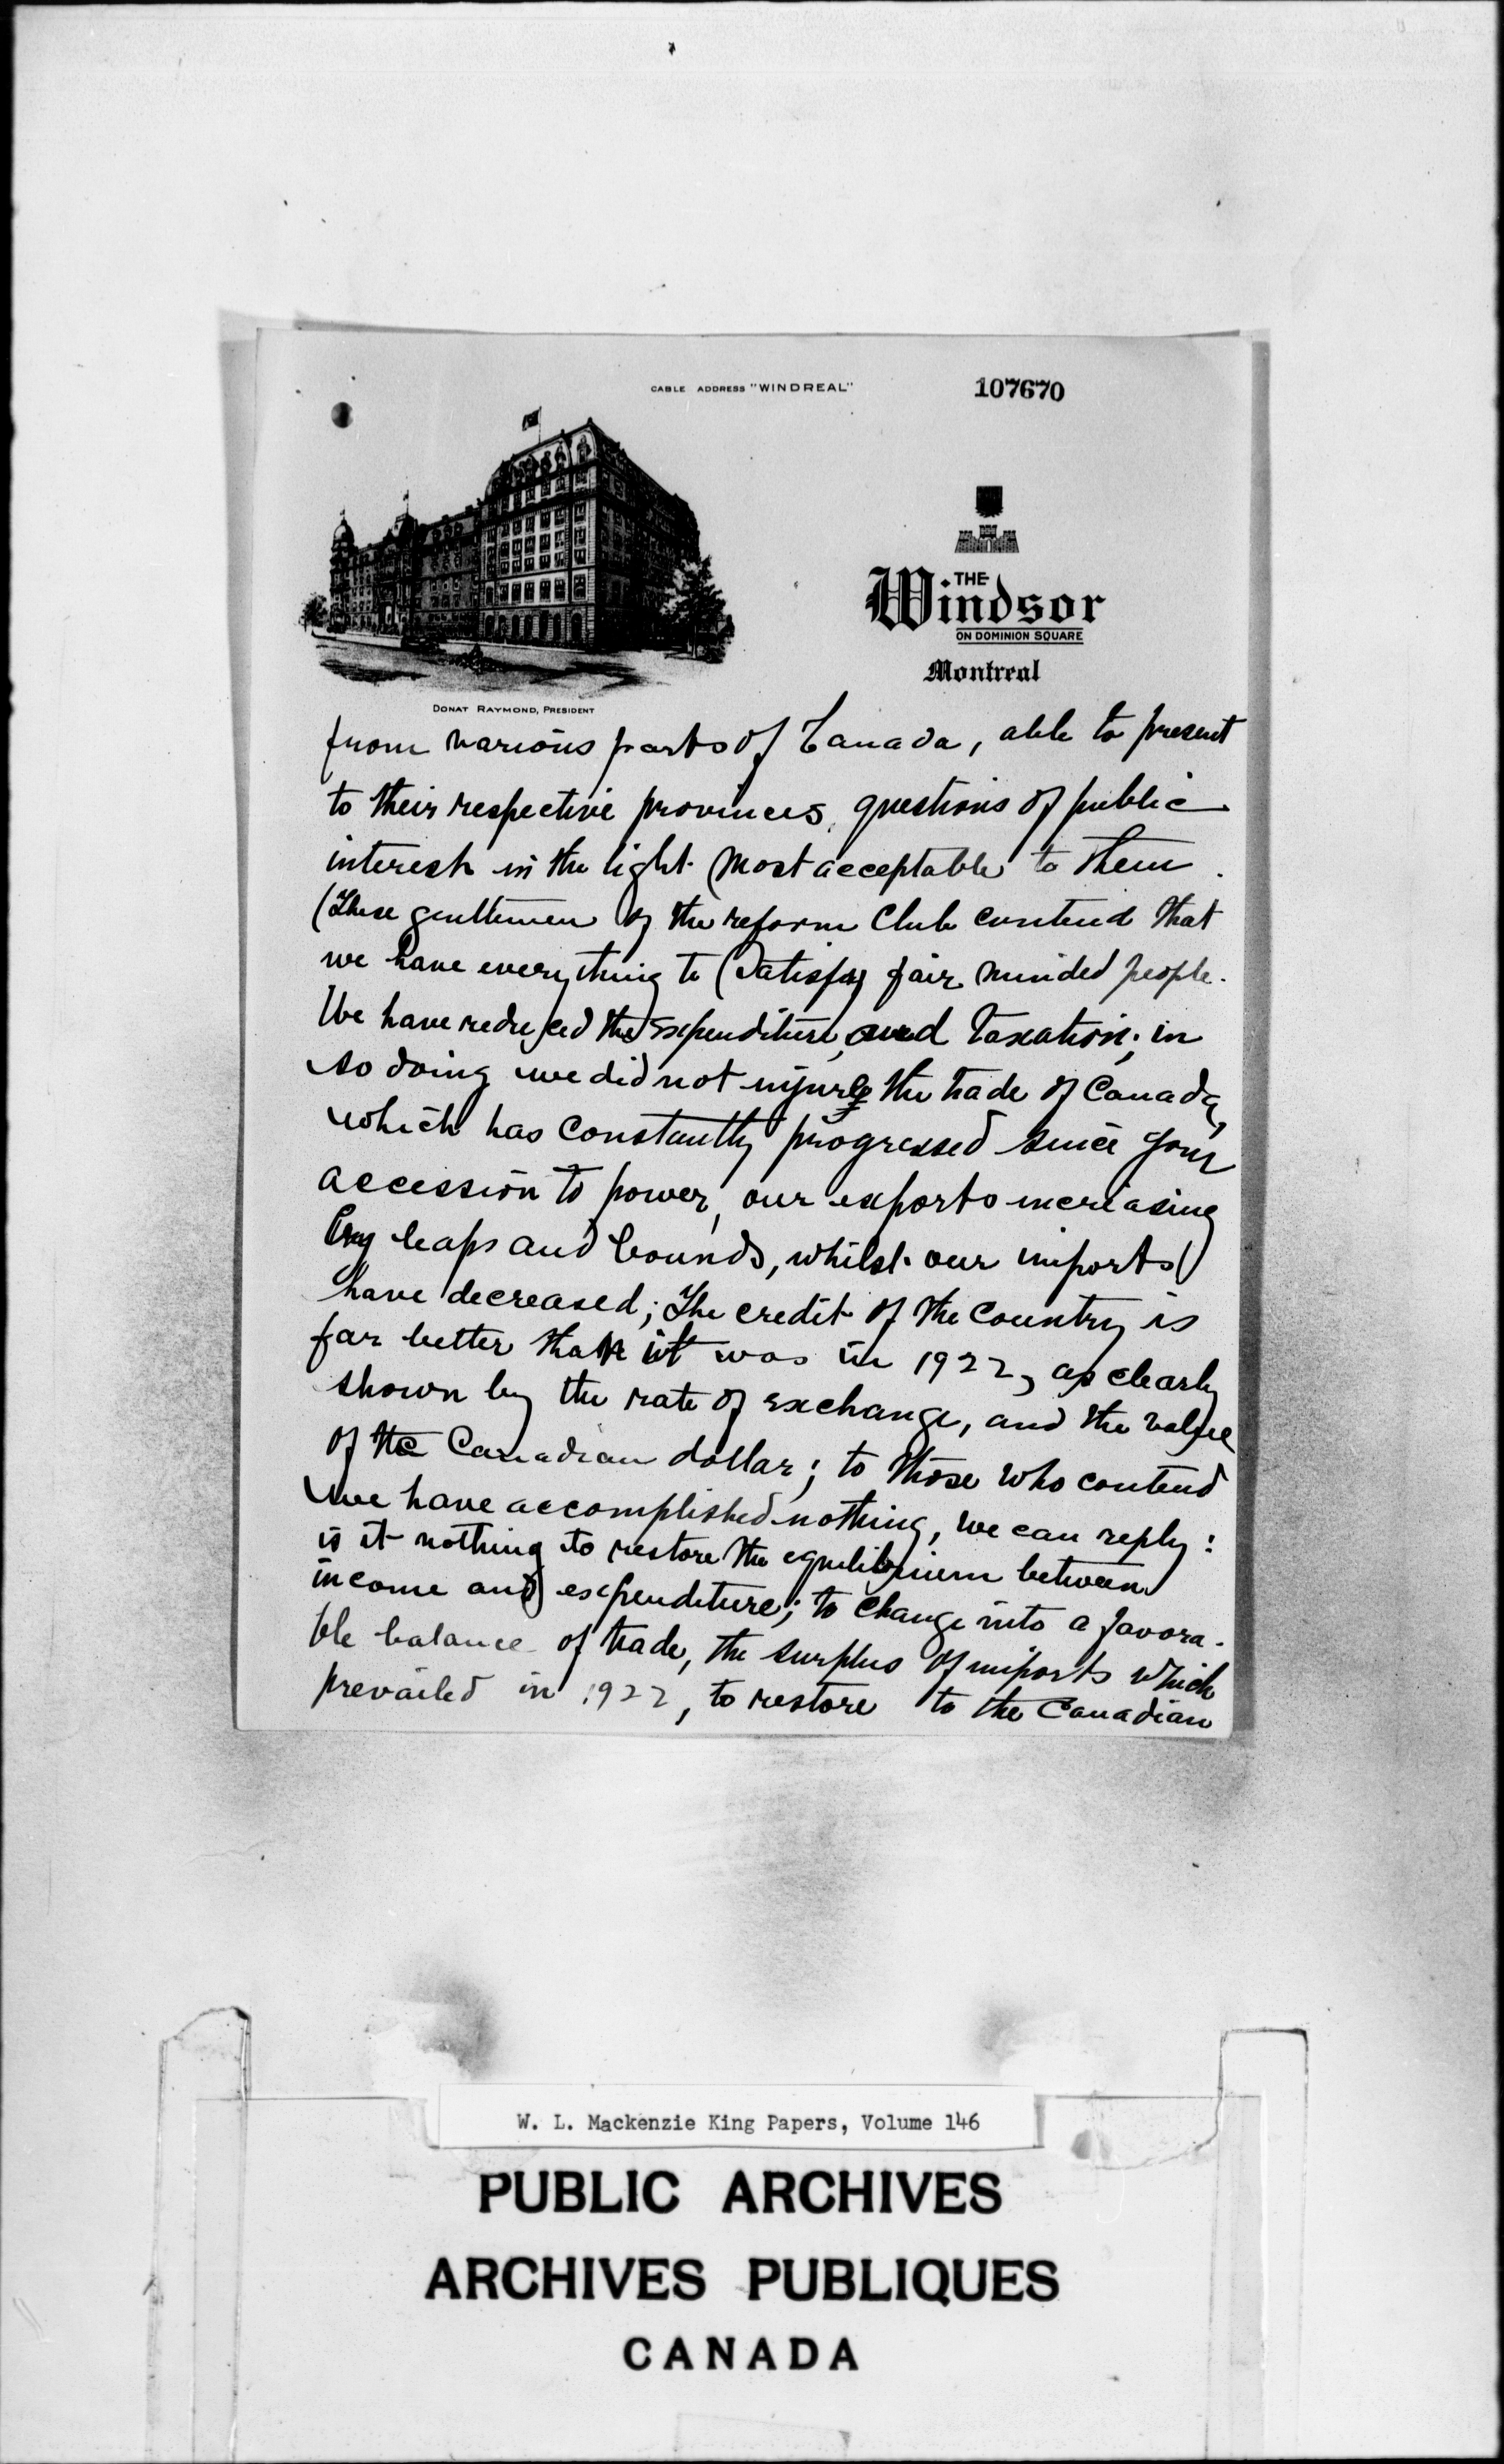 CABLE ADDRESS "WINDREAL"
107670
THE
Windsor
ON DOMINION SQUARE
Montreal
DONAT RAYMOND, PRESIDENT
from various parts of Canada, able to present
to their respective provinces, questions of public
interest in the light most acceptable to them.
These gentlemen of the reform Club contend that
we have everything to satisfy fair minded people.
We have reduced the expenditure, and taxation; in
so doing we did not injure the trade of Canada,
which has constantly progressed since your
accession to power, our exports increasing
by leaps and bounds, whilst our imports
have decreased; The credit of the country is
far better than it was in 1922, as clearly
shown by the rate of exchange, and the value
of the Canadian dollar; to those who contend
we have accomplished nothing, we can reply:
is it nothing to restore the equilibrium between
income and expenditure; to change into a favora-
ble balance of trade, the surplus of imports which
prevailed in 1922, to restore to the Canadian
W. L. Mackenzie King Papers, Volume 146
PUBLIC ARCHIVES
ARCHIVES PUBLIQUES
CANADA